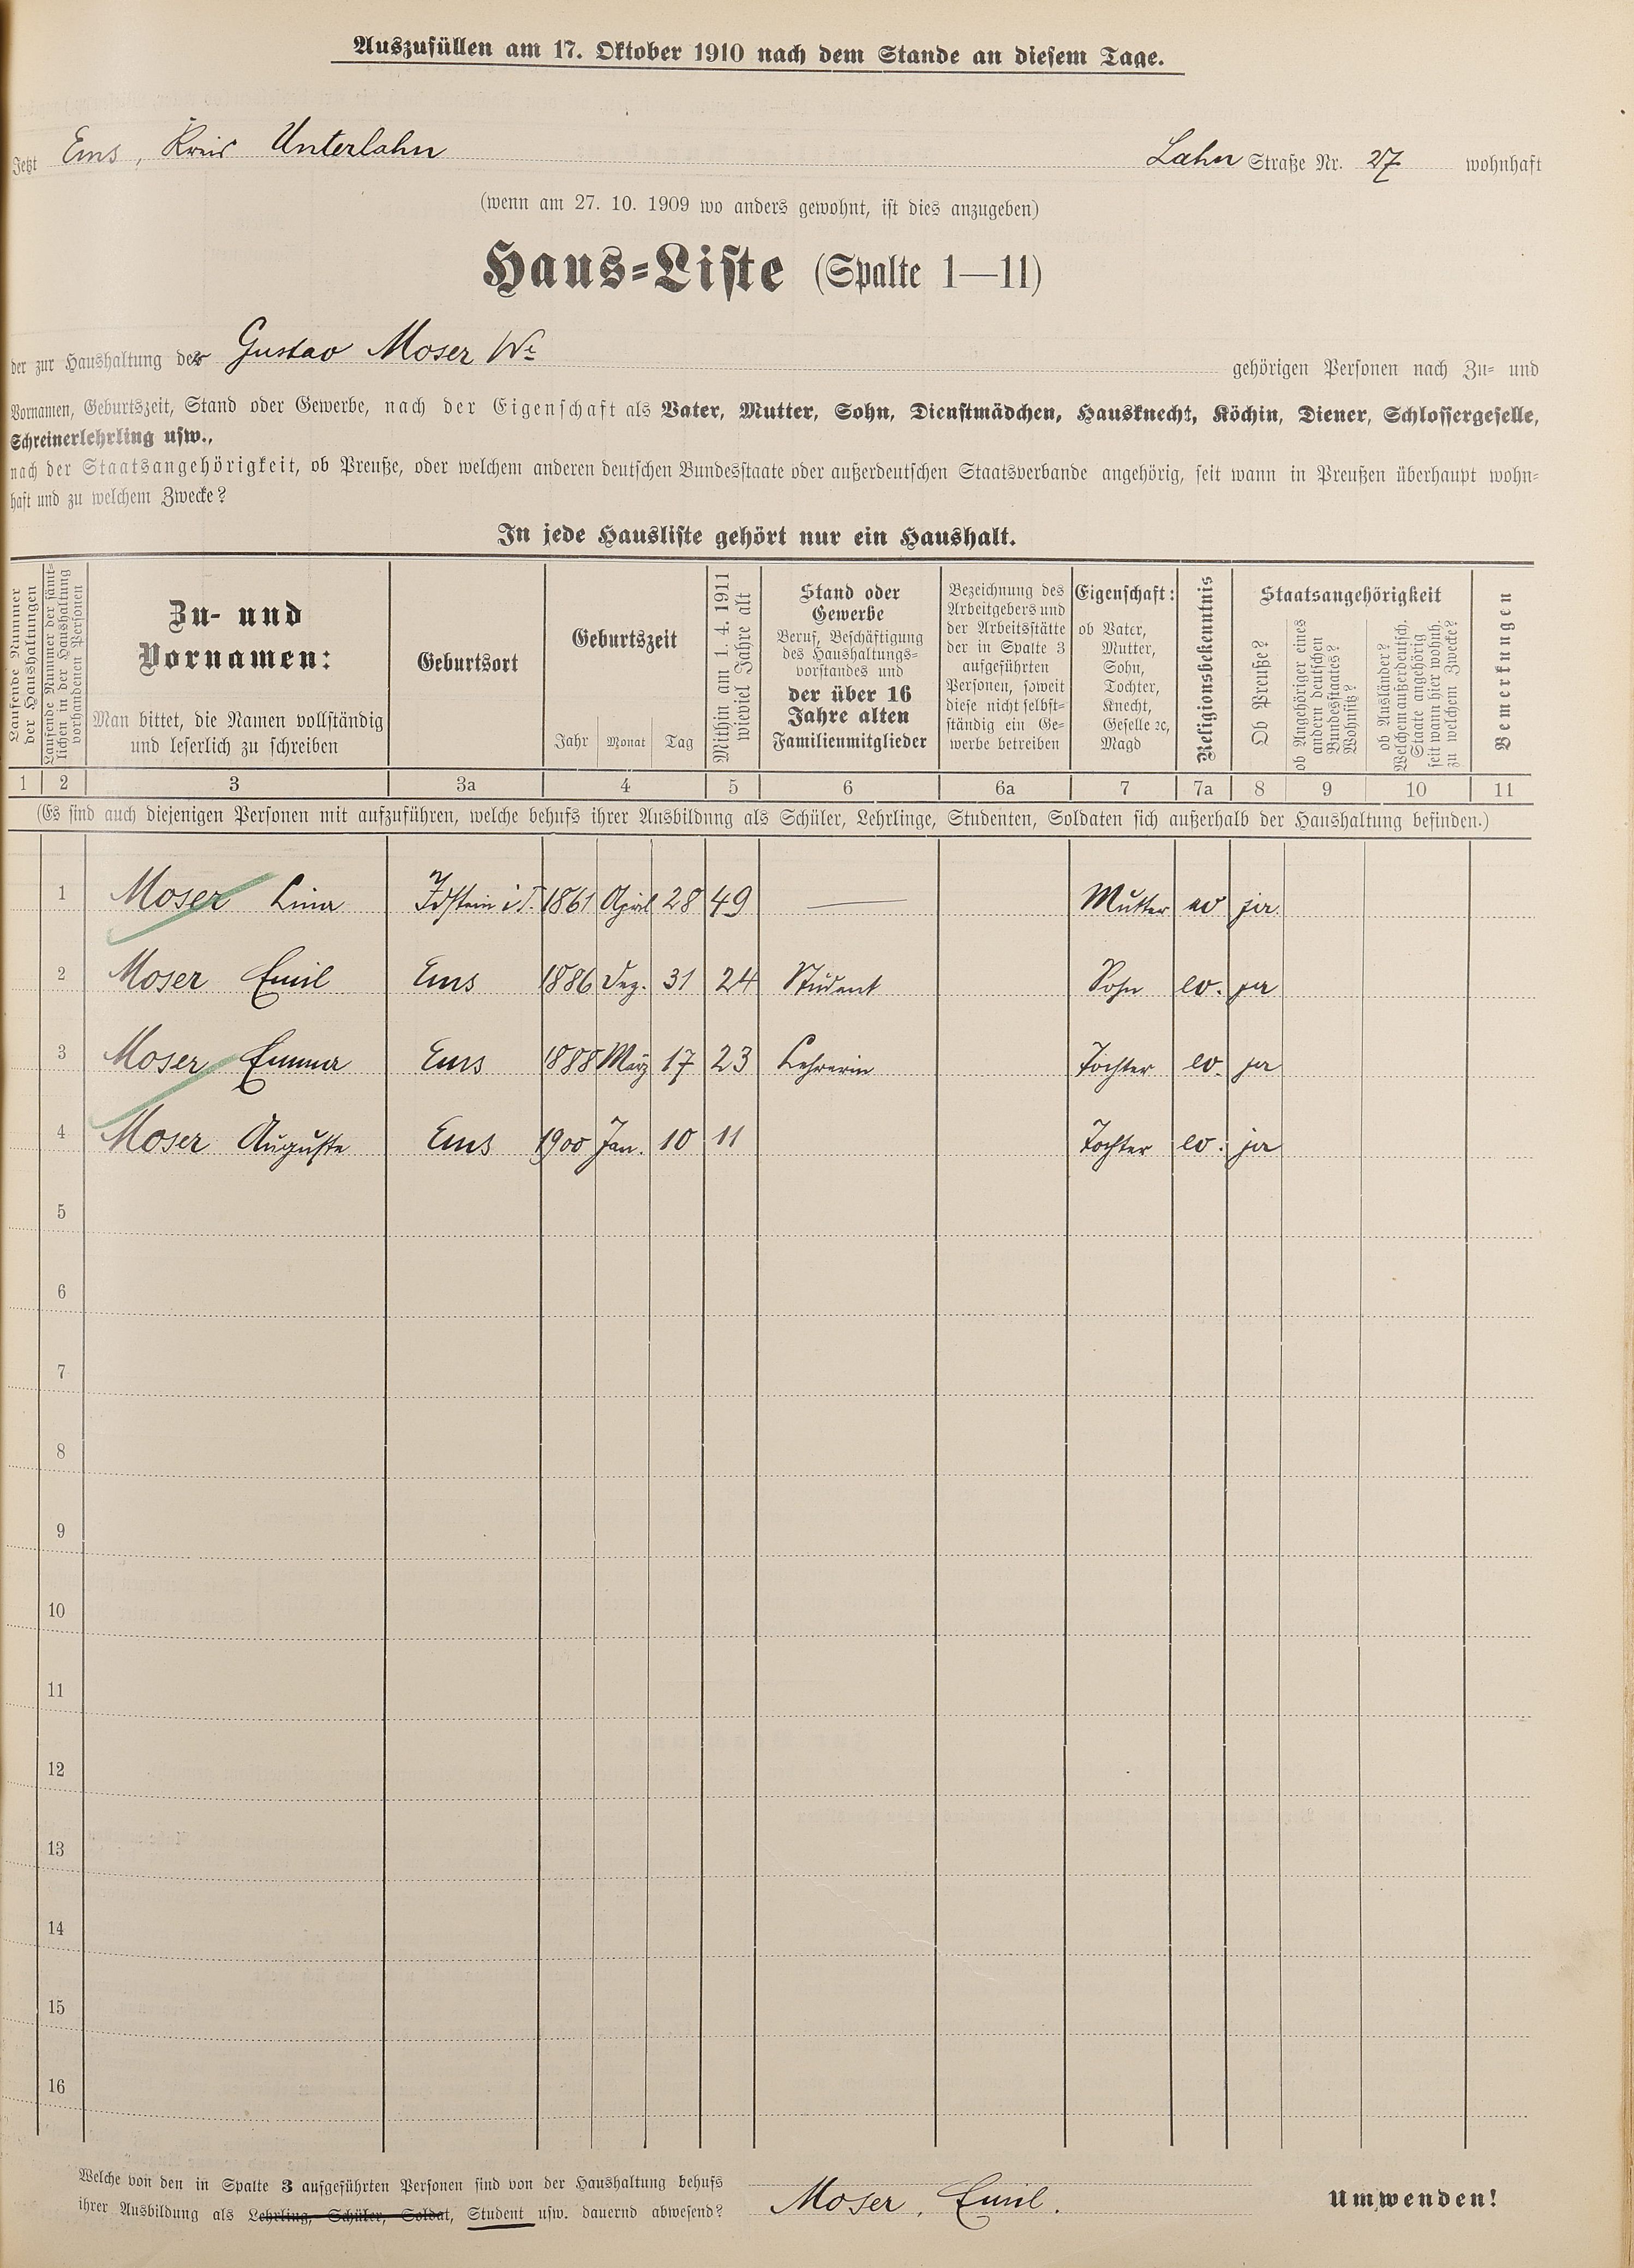 Auszufüllen am 17. Oktober 1910 nach dem Stande an diesem Tage.
Jetzt Ems, Kreis Unterlahn Lahn Straße Nr. 27 wohnhaft
(wenn am 27. 10. 1909 wo anders gewohnt, ist dies anzugeben)
Haus-Liste (Spalte 1—11)
der zur Haushaltung der Gustav Moser We gehörigen Personen nach Zu- und
Vornamen, Geburtszeit, Stand oder Gewerbe, nach der Eigenschaft als Vater, Mutter, Sohn, Dienstmädchen, Hausknecht, Köchin, Diener, Schlossergeselle,
Schreinerlehrling usw.,
nach der Staatsangehörigkeit, ob Preuße, oder welchem anderen deutschen Bundesstaate oder außerdeutschen Staatsverbande angehörig, seit wann in Preußen überhaupt wohn-
haft und zu welchem Zwecke?
In jede Hausliste gehört nur ein Haushalt.
Laufende Nummer
der Haushaltungen
Laufende Nummer der sämt-
lichen in der Haushaltung
vorhandenen Personen
Zu- und
Vornamen:
Man bittet, die Namen vollständig
und leserlich zu schreiben
Geburtsort
Geburtszeit
Jahr Monat Tag
Mithin am 1. 4. 1911
wieviel Jahre alt
Stand oder
Gewerbe
Beruf, Beschäftigung
des Haushaltungs-
vorstandes und
der über 16
Jahre alten
Familienmitglieder
Bezeichnung des
Arbeitgebers und
der Arbeitsstätte
der in Spalte 3
aufgeführten
Personen, soweit
diese nicht selbst-
ständig ein Ge-
werbe betreiben
Eigenschaft:
ob Vater,
Mutter,
Sohn,
Tochter,
Knecht,
Geselle ꝛc,
Magd
Religionsbekenntnis
Staatsangehörigkeit
Ob Preuße?
ob Angehöriger eines
andern deutschen
Bundesstaates?
Wohnsitz?
ob Ausländer?
Welchem außerdeutsch.
Staate angehörig
seit wann hier wohnh.
zu welchem Zwecke?
Bemerkungen
1 2 3 3a 4 5 6 6a 7 7a 8 9 10 11
(Es sind auch diejenigen Personen mit aufzuführen, welche behufs ihrer Ausbildung als Schüler, Lehrlinge, Studenten, Soldaten sich außerhalb der Haushaltung befinden.)
1 Moser Lina Idstein i. T. 1861 April 28 49 — Mutter ev ja.
2 Moser Emil Ems 1886 Dez. 31 24 Student Sohn ev. ja
3 Moser Emma Ems 1888 März 17 23 Lehrerin Tochter ev. ja
4 Moser Auguste Ems 1900 Jan. 10 11 Tochter ev. ja
5
6
7
8
9
10
11
12
13
14
15
16
Welche von den in Spalte 3 aufgeführten Personen sind von der Haushaltung behufs
ihrer Ausbildung als Lehrling, Schüler, Soldat, Student usw. dauernd abwesend? Moser, Emil.
Umwenden!